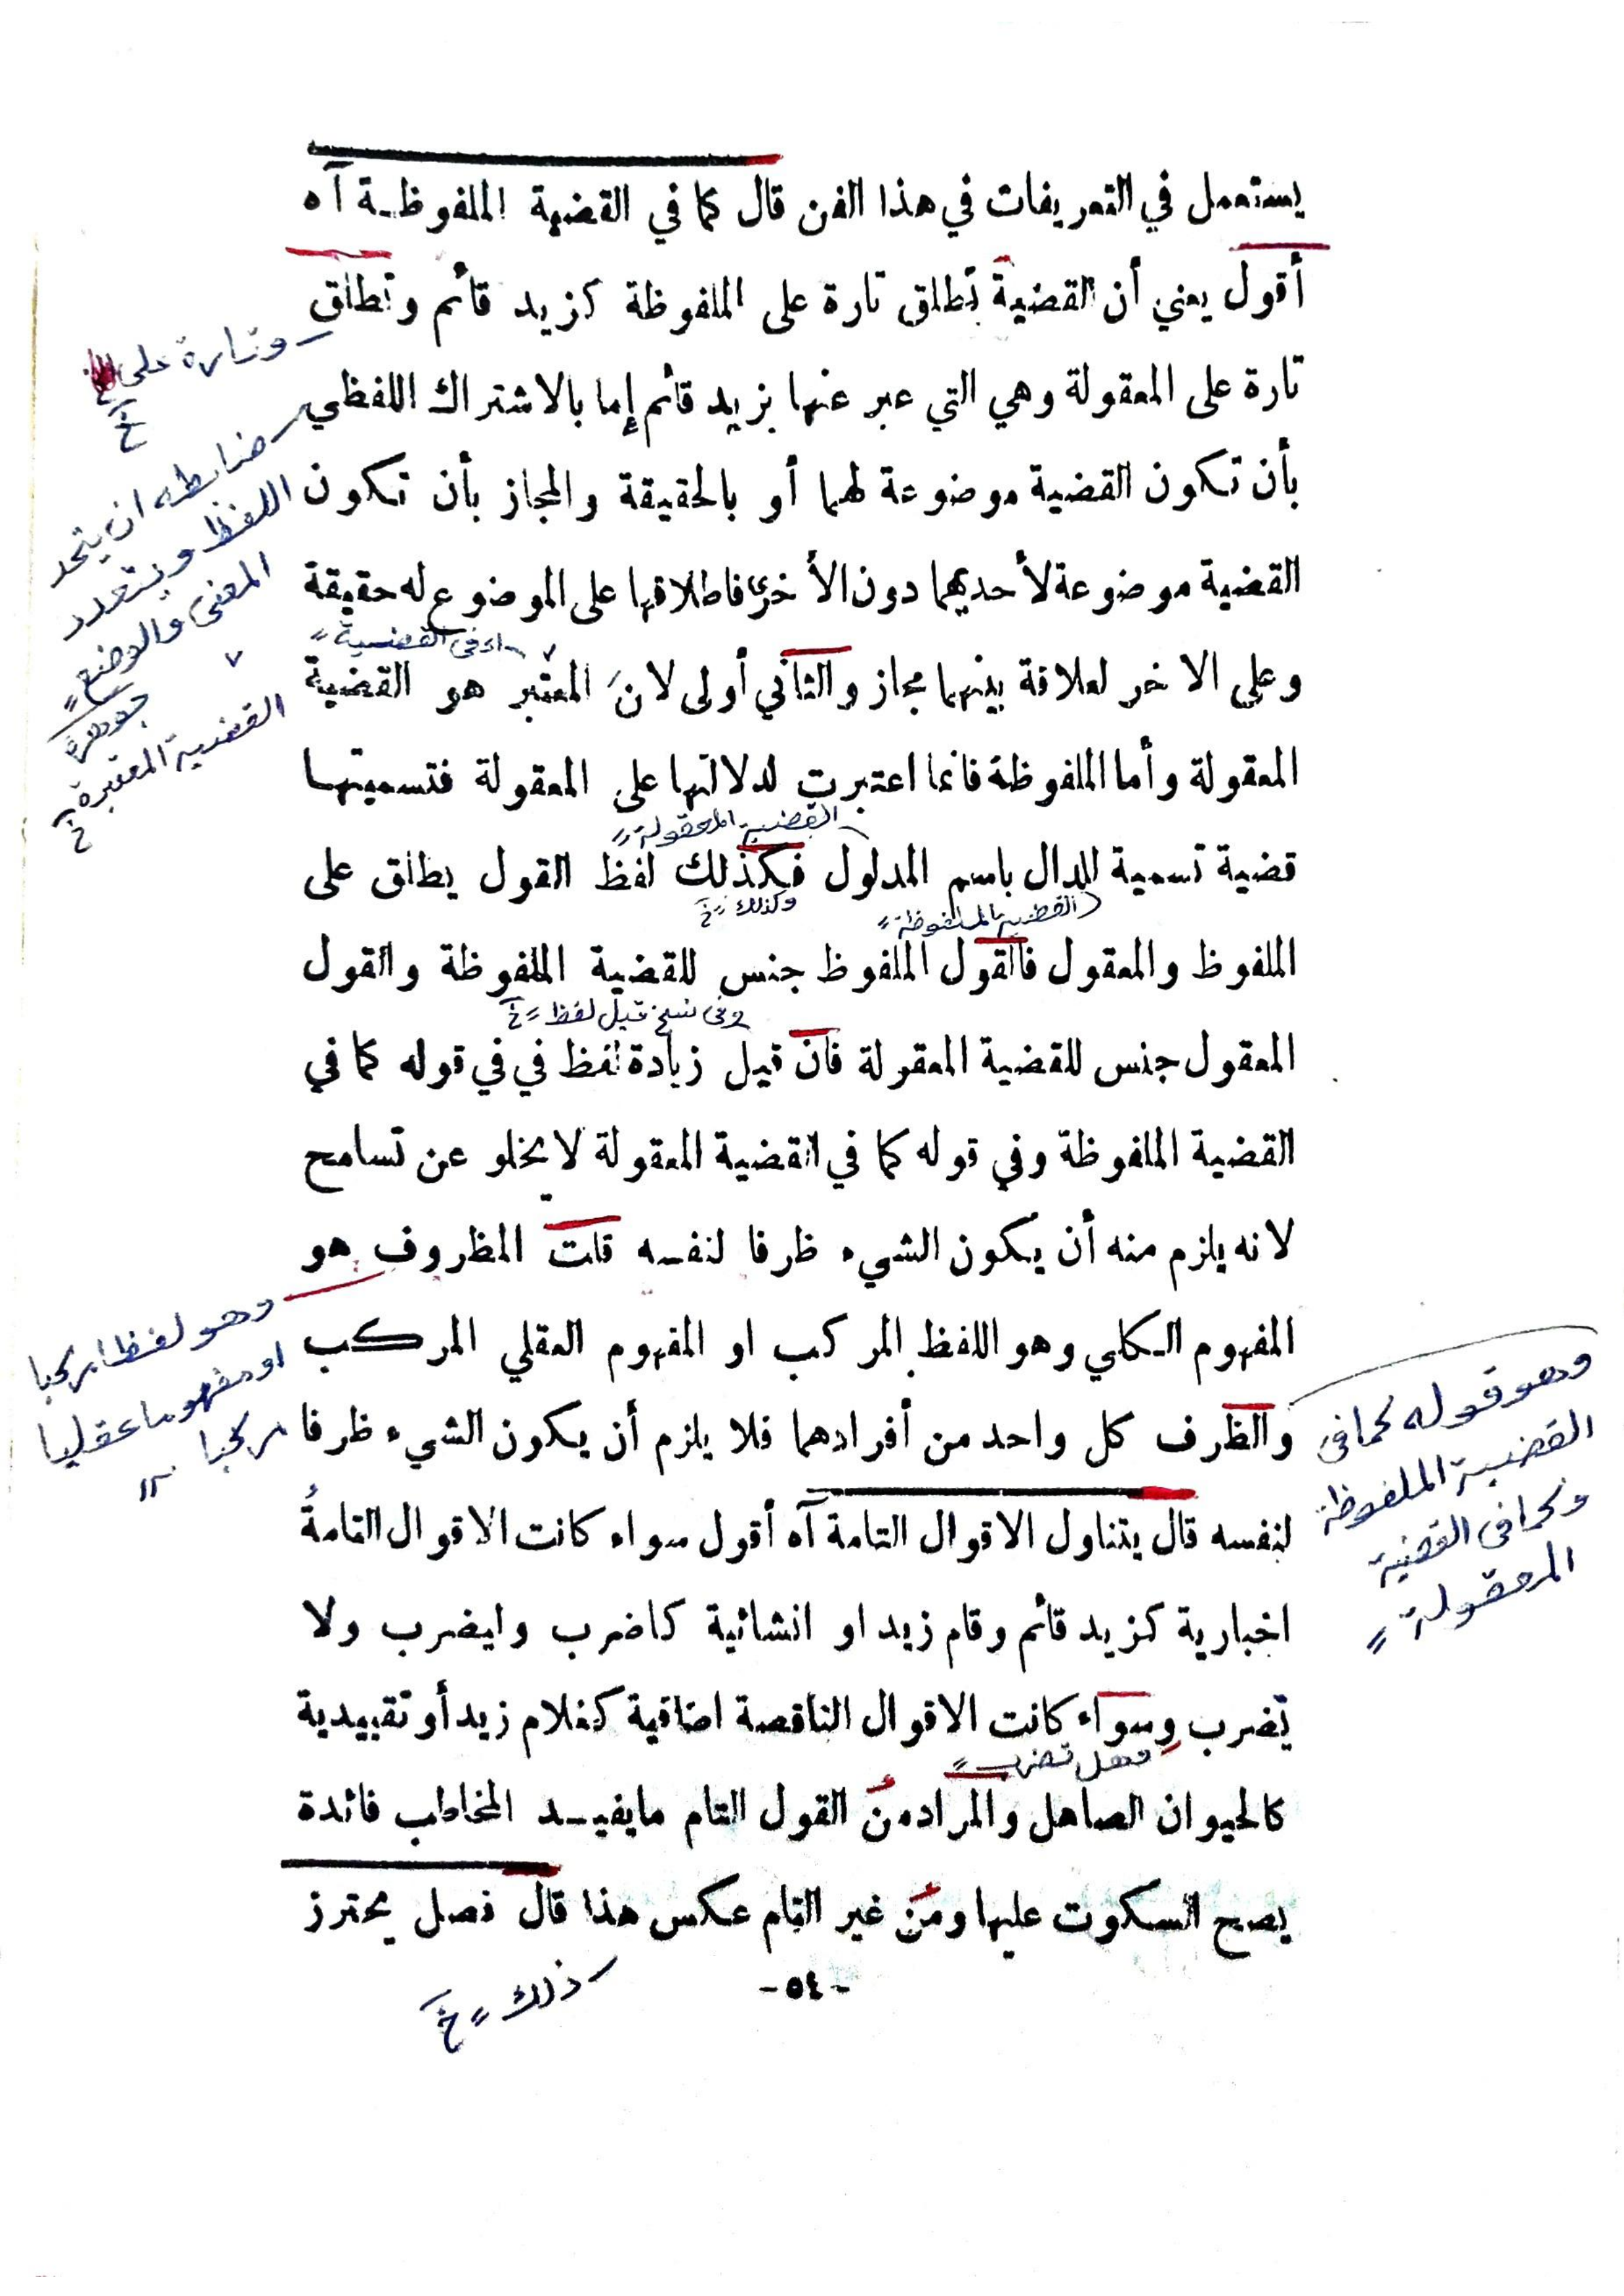 يستعمل في التعريفات في هذا الفن قال كما في القضية الملفوظة آه
أقول يعني أن القضية تطلق تارة على الملفوظة كزيد قائم وتطلق
وتارة على
خ
تارة على المعقولة وهي التي عبر عنها بزيد قائم إما بالاشتراك اللفظي
ضابطه ان يتحد
اللفظ ويتعدد
المعنى والوضع
جوهرة
بأن تكون القضية موضوعة لهما أو بالحقيقة والمجاز بأن تكون
القضية موضوعة لأحديهما دون الأخرى فاطلاقها على الموضوع له حقيقة
اى فى القضية
وعلى الاخر لعلاقة بينهما مجاز والثاني أولى لان المعتبر هو القضية
القضية المعتبرة خ
المعقولة وأما الملفوظة فانما اعتبرت لدلالتها على المعقولة فتسميتها
القضية المعقولة
قضية تسمية الدال باسم المدلول فكذلك لفظ القول يطلق على
وكذلك خ
القضية الملفوظة
الملفوظ والمعقول فالقول الملفوظ جنس للقضية الملفوظة والقول
وفى نسخ قيل لفظ خ
المعقول جنس للقضية المعقولة فان قيل زيادة لفظ في في قوله كما في
القضية الملفوظة وفي قوله كما في القضية المعقولة لا يخلو عن تسامح
لانه يلزم منه أن يكون الشيء ظرفا لنفسه قلت المظروف هو
وهو لفظا مركبا
او مفهوما عقليا
مركبا
المفهوم الكلي وهو اللفظ المركب او المفهوم العقلي المركب
والظرف كل واحد من أفرادهما فلا يلزم أن يكون الشيء ظرفا
وهو قوله كما فى
القضية الملفوظة
وكما فى القضية
المعقولة
لنفسه قال يتناول الاقوال التامة آه أقول سواء كانت الاقوال التامةُ
اخبارية كزيد قائم وقام زيد او انشائية كاضرب وليضرب ولا
تضرب وسواء كانت الاقوال الناقصة اضافية كغلام زيد أو تقييدية
وهل تضرب
كالحيوان الصاهل والمراد من القول التام مايفيد المخاطب فائدة
يصح السكوت عليها ومن غير التام عكس هذا قال فصل يحترز
ذلك خ
- ٥٤ -